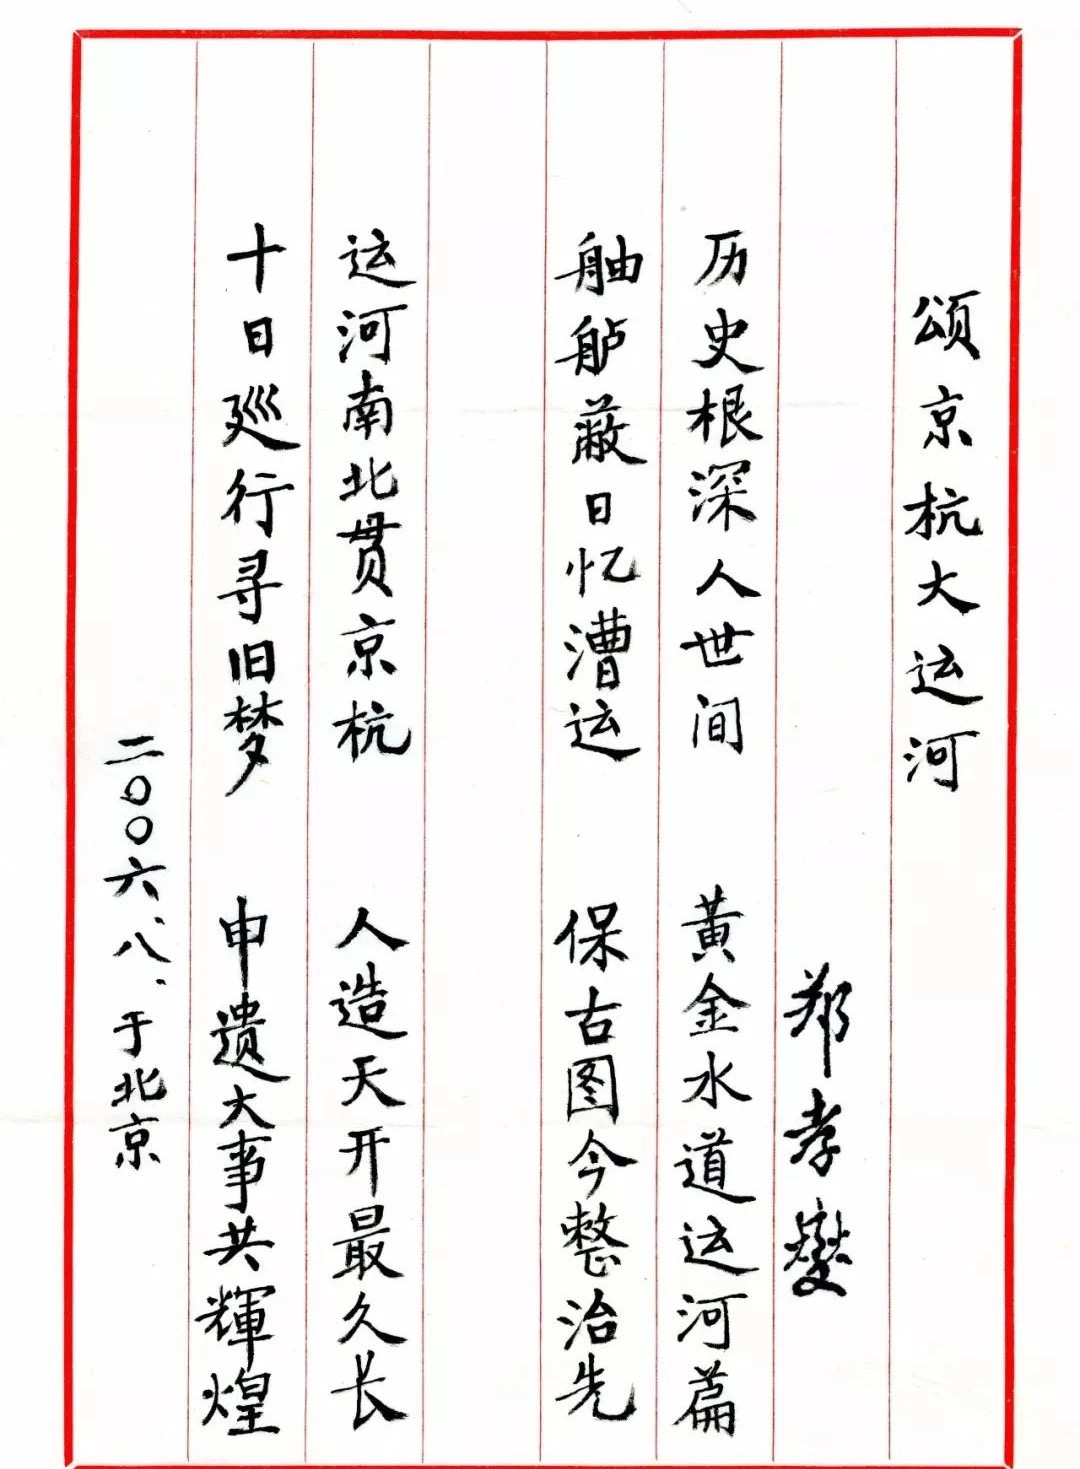 颂京杭大运河
郑孝燮
历史根深人世间 黄金水道运河篇
舳舻蔽日忆漕运 保古图今整治先
运河南北贯京杭 人造天开最久长
十日巡行寻旧梦 申遗大事共輝煌
二〇〇六、八、于北京